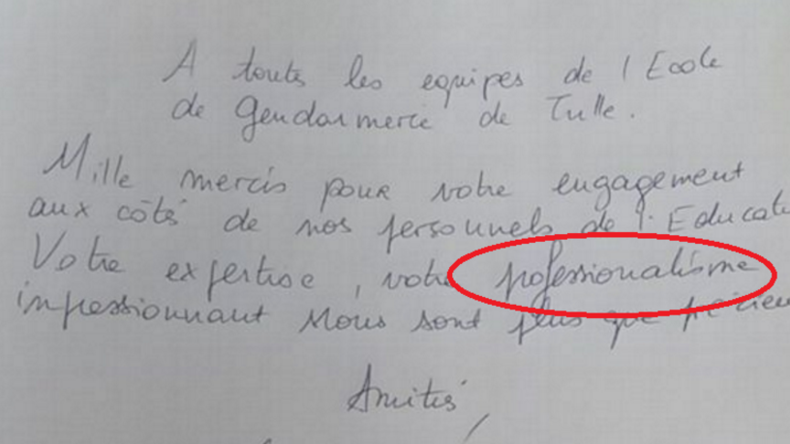 A toutes les equipes de l Ecole
de Gendarmerie de Tulle.
Mille mercis pour votre engagement
aux côté de nos personnels de l'Educat
Votre expertise, votre pofessionalisme
impressionnant Nous sont plus que précieu
Amitiés